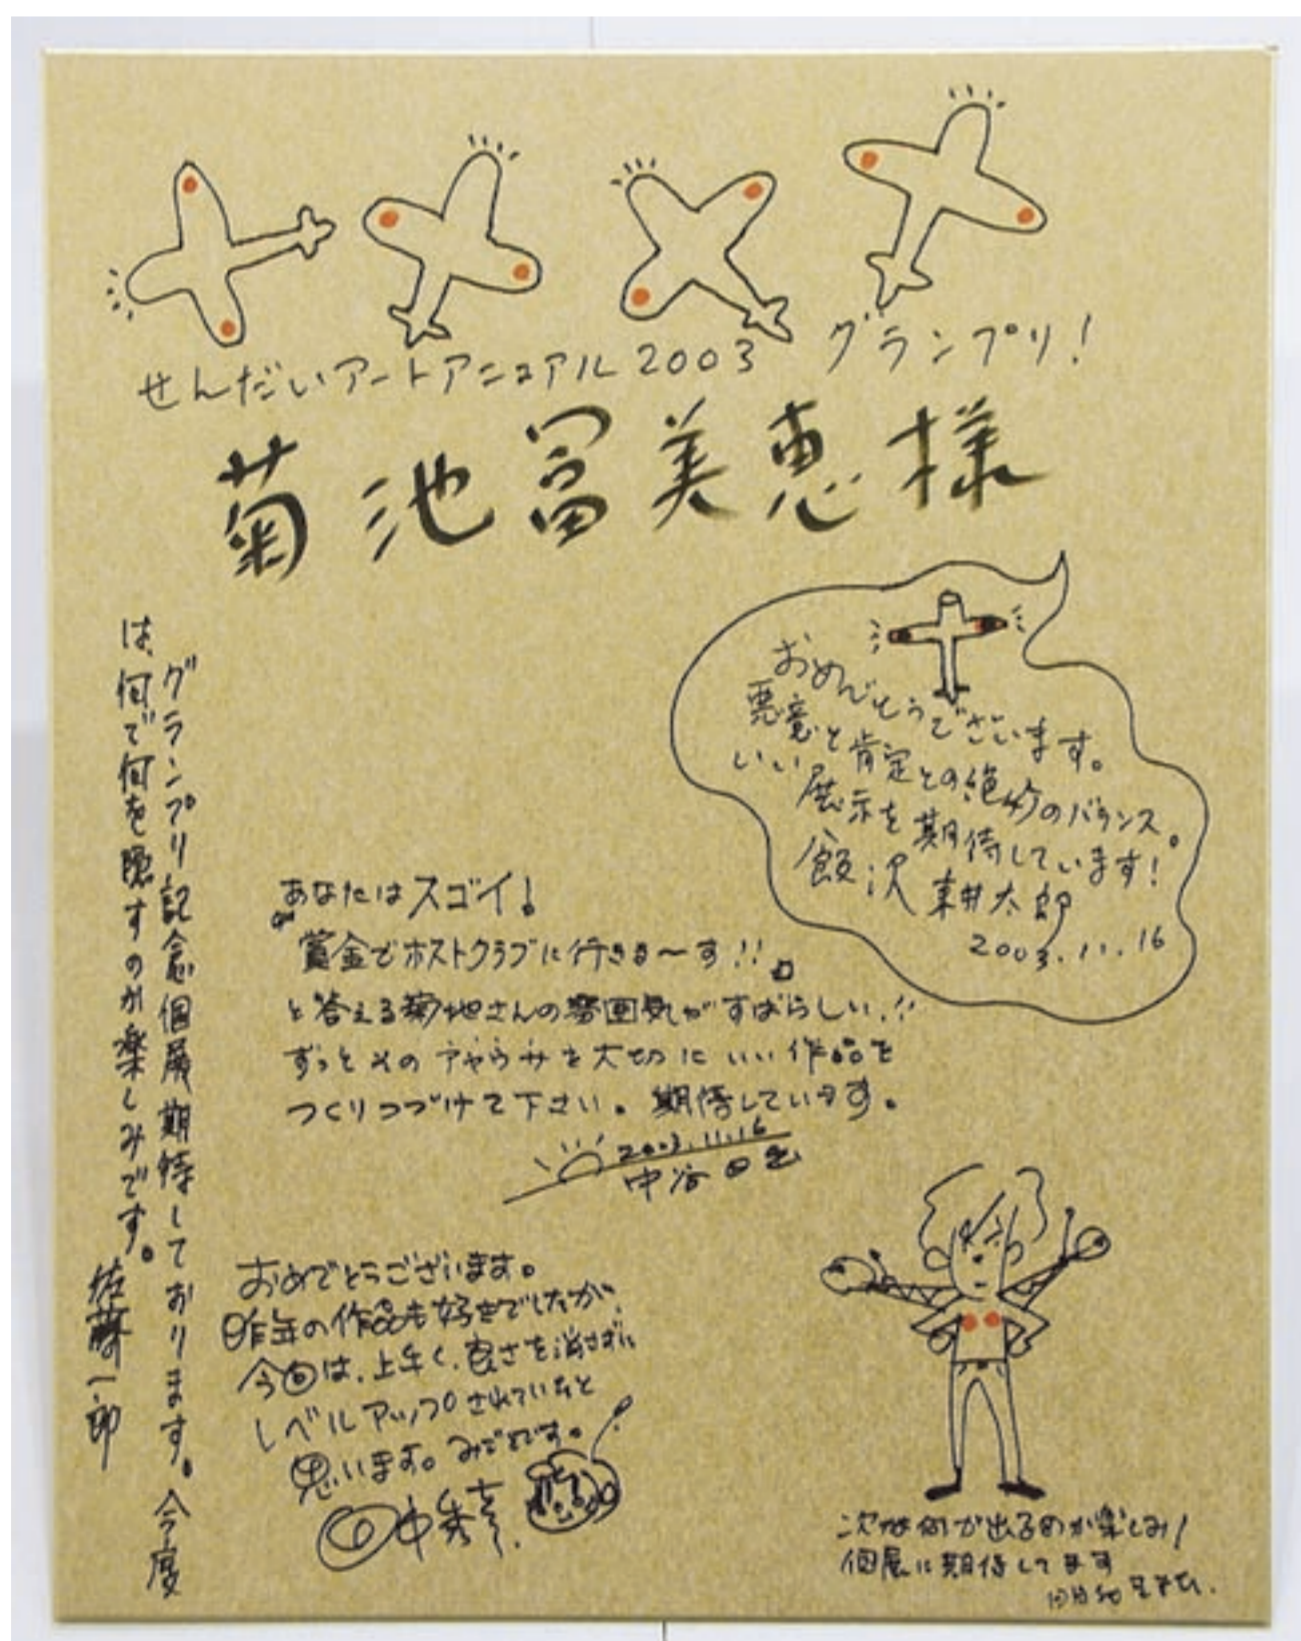 せんだいアートアニュアル2003 グランプリ!
菊池冨美恵様
おめでとうございます。
悪意と肯定との絶妙のバランス。
いい展示を期待しています!
飯沢耕太郎
2003.11.16
グランプリ記念個展期待しております。今度
は、何で何を隠すのか楽しみです。
佐藤一郎
あなたはスゴイ!
賞金でホストクラブに行きま〜す!!
と答える菊地さんの雰囲気がすばらしい!!
ずっとそのアヤウサを大切にいい作品を
つくりつづけて下さい。期待しています。
2003.11.16
中谷日出
おめでとうございます。
昨年の作品も好きでしたが、
今回は、上手く、良さを消さずに
レベルアップされていたと
思います。みごとです。
田中秀幸
次は何が出るのか楽しみ!
個展に期待してます